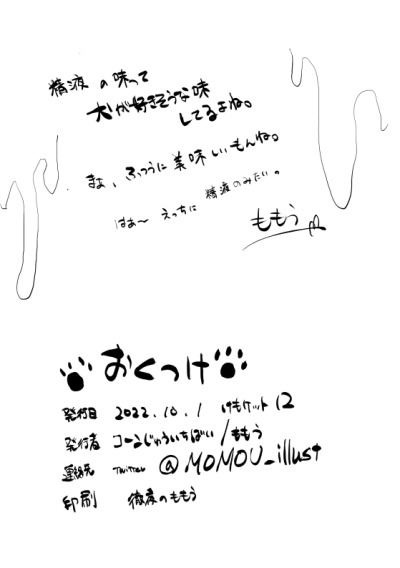 精液の味って
犬が好きそうな味
してるよね。
まぁ、ふつうに美味しいもんね。
はぁ〜えっちに精液のみたい。
ももう
おくつけ
発行日 2022.10.1 けもケット12
発行者 コーンじゅういちばい/ももう
連絡先 Twitter @MOMOU_illust
印刷 のももう